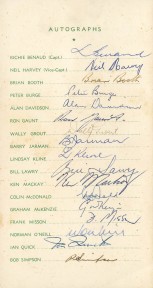 AUTOGRAPHS
RICHIE BENAUD (Capt.)
NEIL HARVEY (Vice-Capt.) Neil Harvey
BRIAN BOOTH Brian Booth
PETER BURGE Peter Burge
ALAN DAVIDSON Alan Davidson
RON GAUNT
WALLY GROUT
BARRY JARMAN BJarman
LINDSAY KLINE L Kline
BILL LAWRY Bill Lawry
KEN MACKAY Ken Mackay
COLIN McDONALD
GRAHAM McKENZIE
FRANK MISSON F. Misson
NORMAN O'NEILL
IAN QUICK
BOB SIMPSON